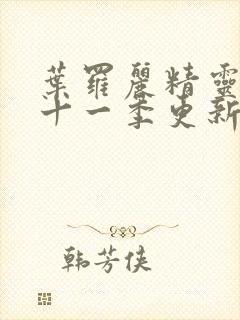 葉羅麗精靈
十一季更新
韩芳侠